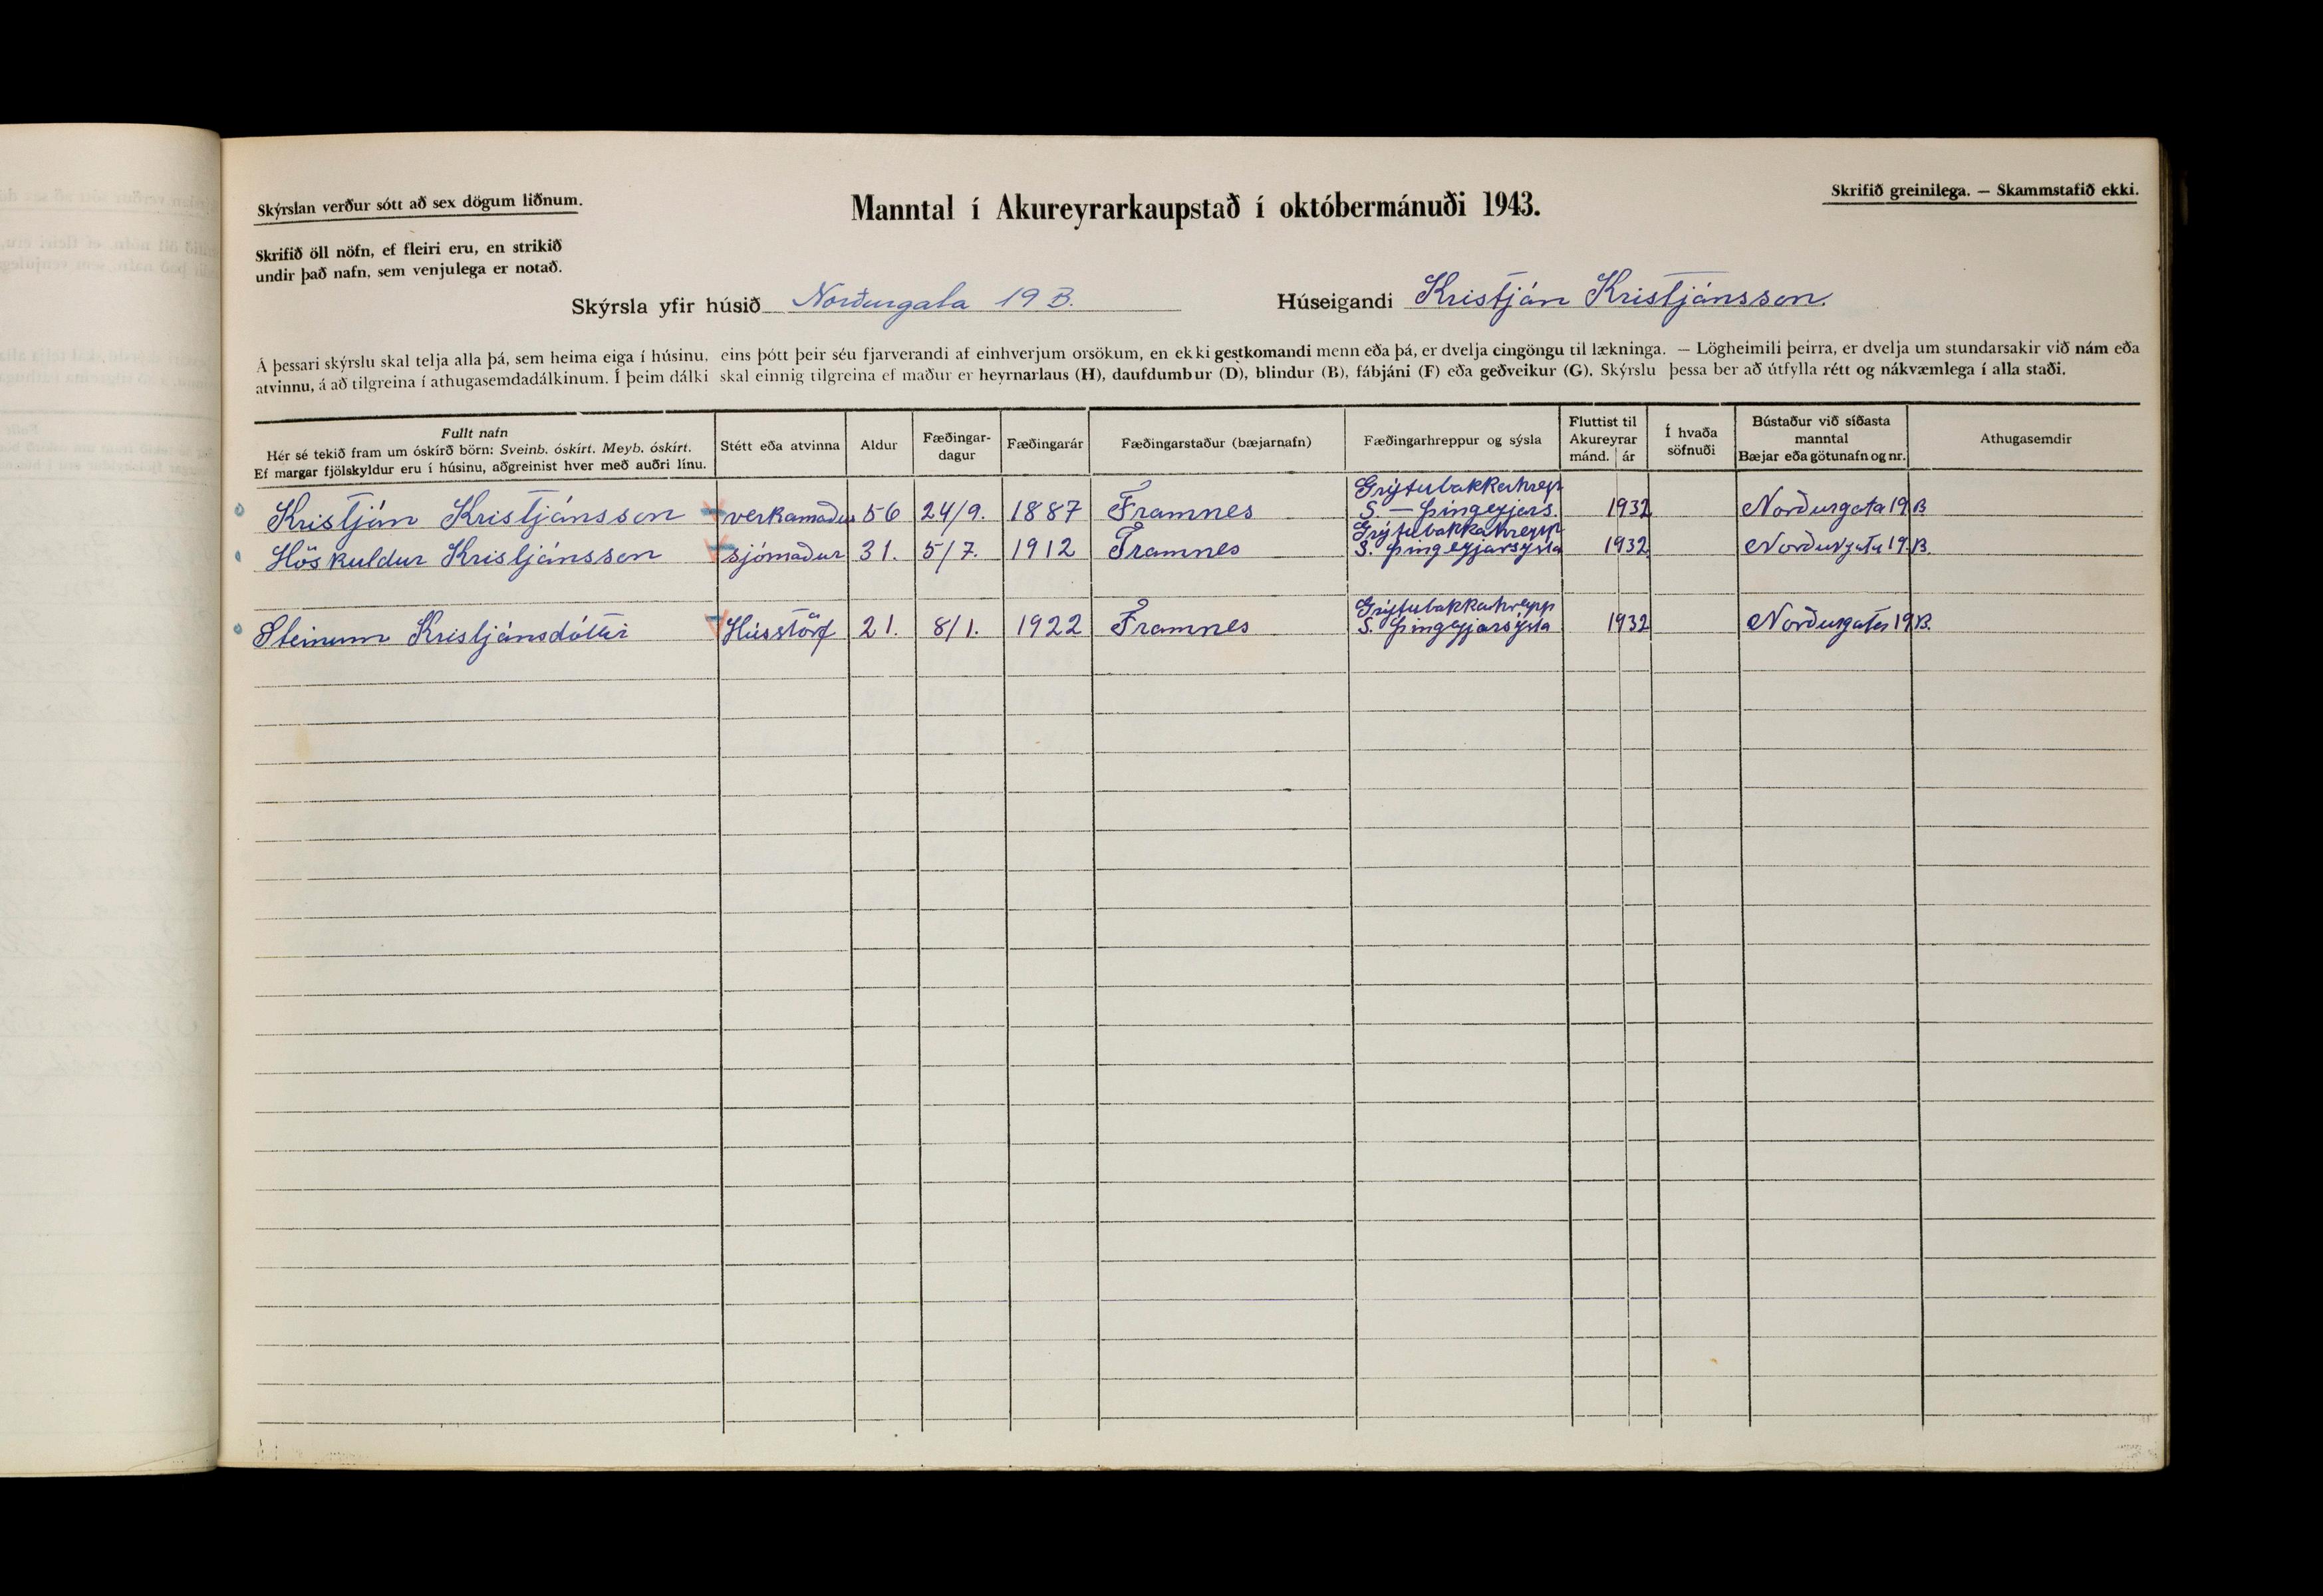 Skýrslan verður sótt að sex dögum liðnum.
Manntal í Akureyrarkaupstað í októbermánuði 1943.
Skrifið greinilega. — Skammstafið ekki.
Skrifið öll nöfn, ef fleiri eru, en strikið
undir það nafn, sem venjulega er notað.
Skýrsla yfir húsið Norðurgata 19 B.
Húseigandi Kristján Kristjánsson.
Á þessari skýrslu skal telja alla þá, sem heima eiga í húsinu, eins þótt þeir séu fjarverandi af einhverjum orsökum, en ekki gestkomandi menn eða þá, er dvelja eingöngu til lækninga. — Lögheimili þeirra, er dvelja um stundarsakir við nám eða
atvinnu, á að tilgreina í athugasemdadálkinum. Í þeim dálki skal einnig tilgreina ef maður er heyrnarlaus (H), daufdumbur (D), blindur (B), fábjáni (F) eða geðveikur (G). Skýrslu þessa ber að útfylla rétt og nákvæmlega í alla staði.
Fullt nafn
Hér sé tekið fram um óskírð börn: Sveinb. óskírt. Meyb. óskírt.
Ef margar fjölskyldur eru í húsinu, aðgreinist hver með auðri línu.
Stétt eða atvinna
Aldur
Fæðingar-
dagur
Fæðingarár
Fæðingarstaður (bæjarnafn)
Fæðingarhreppur og sýsla
Fluttist til
Akureyrar
mánd. ár
Í hvaða
söfnuði
Bústaður við síðasta
manntal
Bæjar eða götunafn og nr.
Athugasemdir
Grýtubakkahrepp
Kristján Kristjánsson verkamaður 56 24/9. 1887 Framnes S. — Þingeyjars. 1932 Norðurgata 19 B
Grýtubakkahrepp
Höskuldur Kristjánsson sjómaður 31. 5/7. 1912 Framnes S. Þingeyjarsýsla 1932 Norðurgata 19. B.
Grýtubakkahrepp
Steinunn Kristjánsdóttir Hússtörf 21. 8/1. 1922 Framnes S. Þingeyjarsýsla 1932 Norðurgata 19 B.